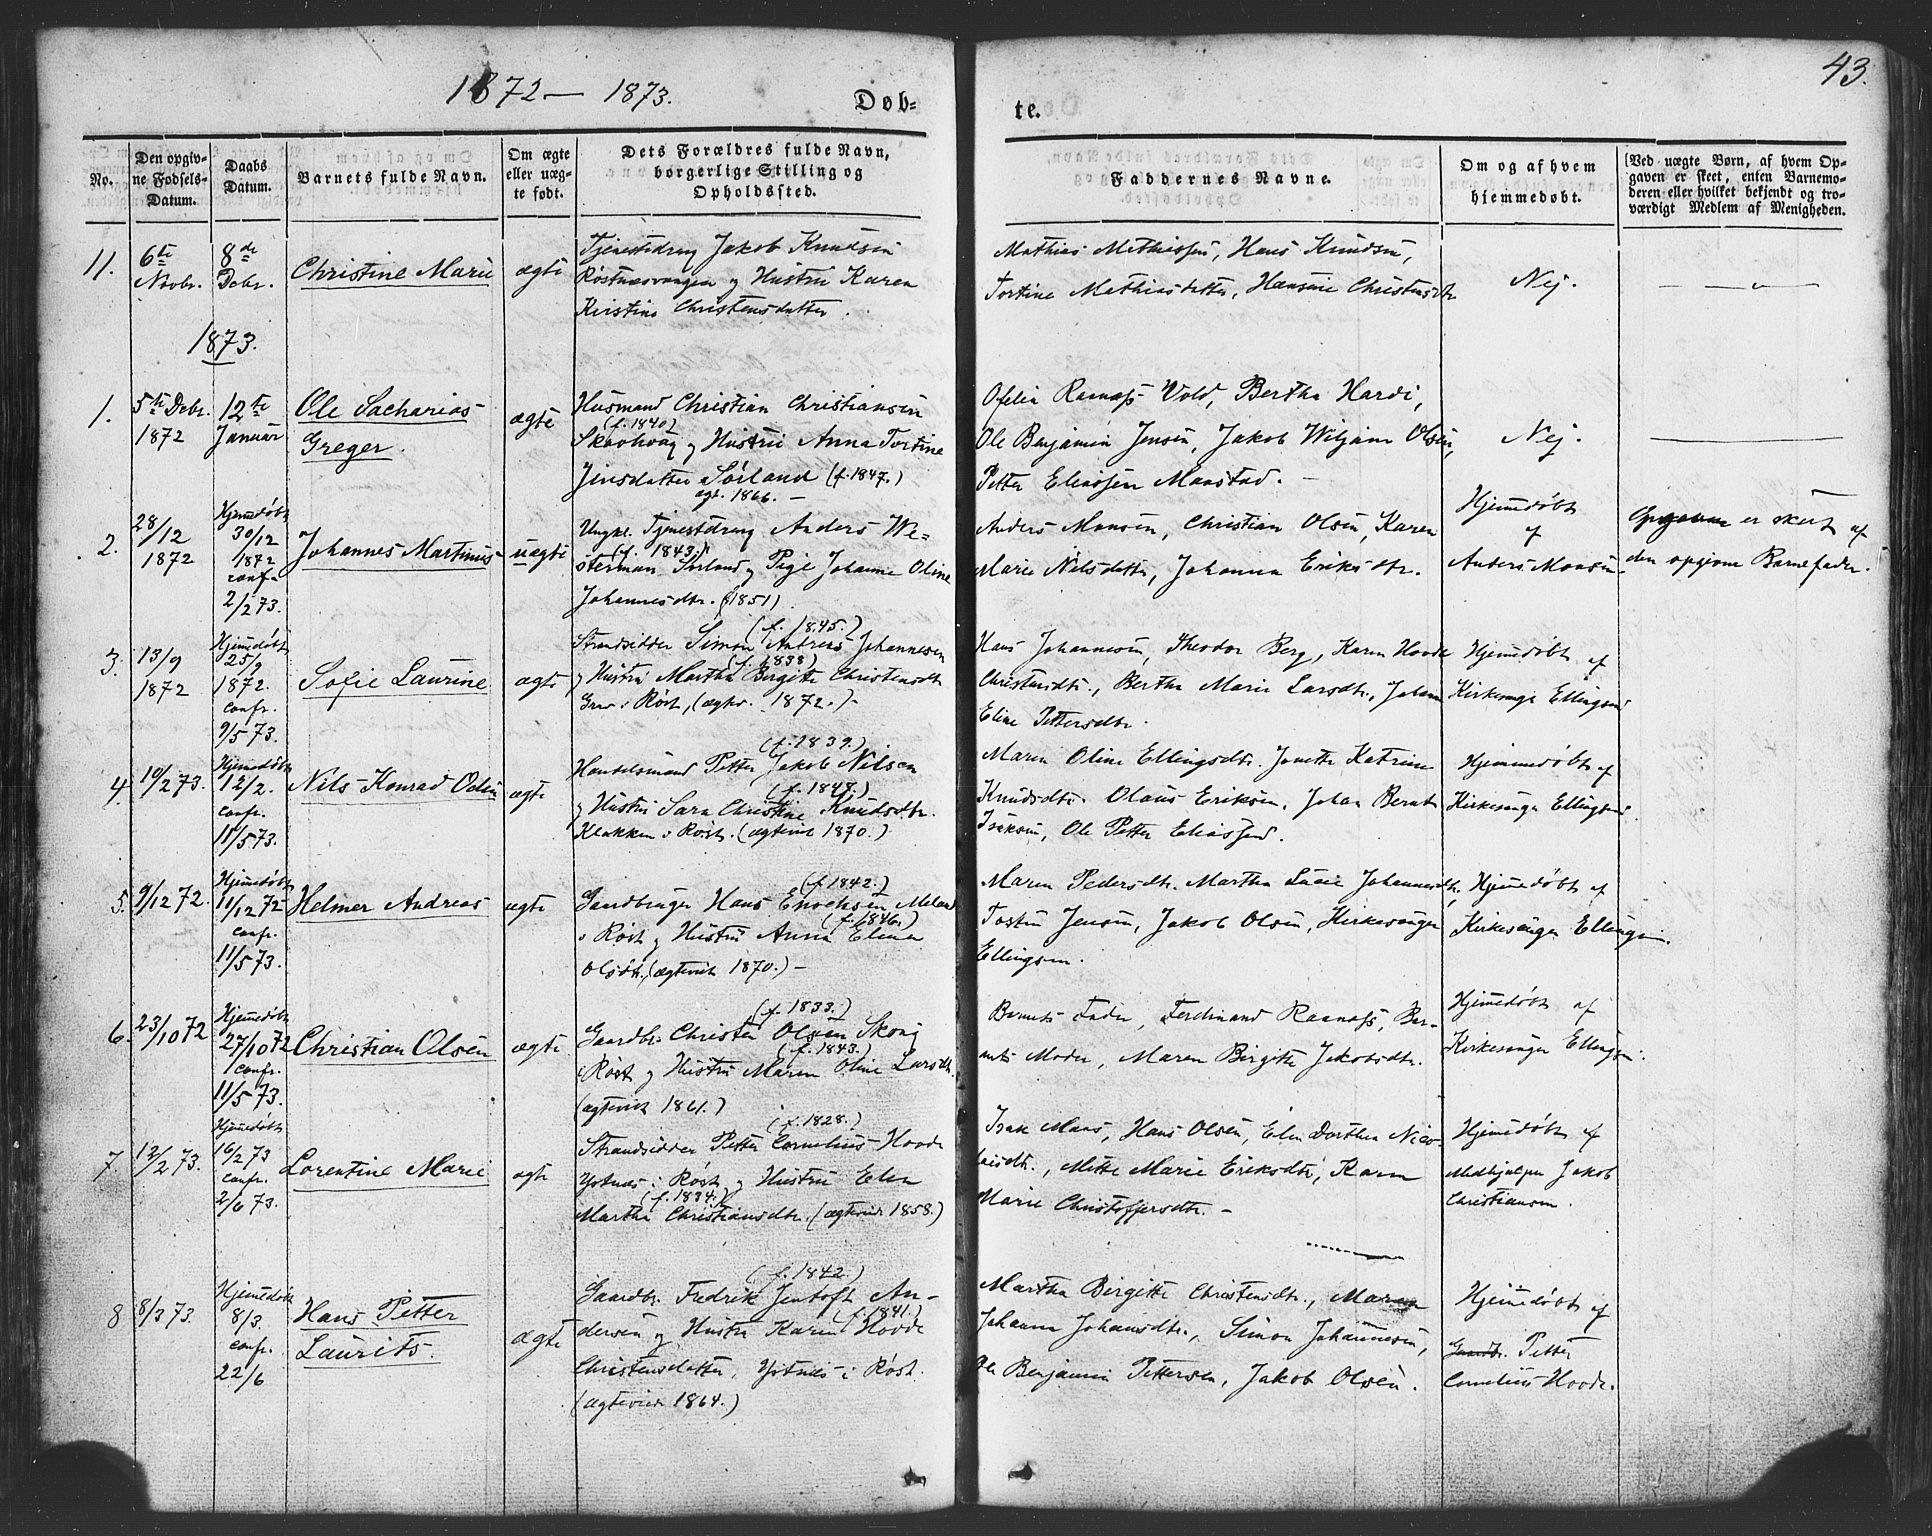 1872 — 1873.
Døb-
te.
43.
No.
Den opgiv-
ne Fødsels-
Datum.
Daabs
Datum.
Barnets fulde Navn.
Om ægte
eller uæg-
te født.
Dets Forældres fulde Navn,
borgerlige Stilling og
Opholdssted.
Faddernes Navne.
Om og af hvem
hjemmedøbt.
(Ved uægte Børn, af hvem Op-
gaven er skeet, enten Barnemo-
deren eller hvilket bekjendt og tro-
værdigt Medlem af Menigheden.
11.
6te
Novbr.
8de
Decbr.
Christine Marie
ægte
Tjenestedreng Jakob Knudsen
Røstnesvaagen og Hustru Karen
Kristine Christensdatter.
Mathias Mathiassen, Hans Knudsen,
Tortine Mathiasdatter, Hansine Christensdtr
Nej.
1873.
1.
5te Decbr.
1872
12te
Januar
Ole Sacharias
Greger.
ægte
Husmand Christian Christiansen
(f. 1840)
og Hustru Anna Tortine
Jensdatter Sørland (f. 1847.)
egt. 1866. —
Ofelia Raanass Vold, Bertha Hardi,
Ole Benjamin Jensen, Jakob Wiljam Olsen,
Petter Eliassen Maastad. —
Nej.
2.
28/12
1872
Hjemedøbt
30/12
1872
conf.
2/2 73.
Johannes Martinus
uægte
Ungkl. Tjenestdreng Anders We-
(f. 1843.)
sterman Sørland og Pige Johanne Oline
Johannesdtr. (1851)
Anders Monsen, Christian Olsen, Karen
Marie Nilsdatter, Johanna Eriksdtr.
Hjemedøbt
af
Anders Monsen.
Opgaven er skeet af
den opgivne Barnefader.
3.
13/9
1872
Hjemedøbt
25/9
1872.
confr.
9/5 73.
Sofie Laurine
ægte
(f. 1845.)
Strandsidder Simon Andreas Johannesen
(f. 1838)
og Hustru Martha Birgitte Christensdtr
i Røst, (ægtev. 1872.) -
Hans Johannesen, Theodor Berg, Karen Hovde
Christensdtr., Bertha Marie Larsdtr., Johan
Eline Pettersdtr.
Hjemedøbt af
Kirkesanger Ellingsen
4.
10/2 73.
Hjemedøbt
12/2.
confr.
11/5 73.
Nils Konrad Odin
ægte
(f. 1839.)
Handelsmand Petter Jakob Nilsen
(f. 1848.)
og Hustru Sara Christine Knudsdtr.
Klakken i Røst. (ægteviet 1870.)
Maren Oline Ellingsdtr. Jonetta Katrine
Knudsdtr. Olaus Eriksen, Johan Bernt
Isaksen, Ole Petter Eliassen.
Hjemmedøbt af
Kirkesanger Ellingsen
5.
9/12 72.
Hjemedøbt
11/12 72
confr.
11/5 73.
Helmer Andreas
ægte
(f. 1842.)
Gaardbruger Hans Enochsen
(f. 1846.)
i Røst og Hustru Anna Elena
Olsdtr. (ægteviet 1870.) —
Maren Pedersdtr. Martha Lucie Johannesdtr,
Tostin Jensen, Jakob Olsen, Kirkesanger
Ellingsen.
Hjemedøbt af
Kirkesanger Ellingsen.
6.
23/10 72
Hjemedøbt
27/10 72
confr.
11/5 73.
Christian Olsen
ægte
(f. 1833.)
Gaardbr. Christen Olsen
(f. 1843.)
i Røst og Hustru Maren Oline Larsdtr.
(ægteviet 1861.)
Barnets Fader, Ferdinand Raanass, Bar-
nets Moder, Maren Birgitte Jakobsdtr.
Hjemedøbt af
Kirkesanger Ellingsen.
7.
12/2 73.
Hjemedøbt
16/2 73
confr.
2/6 73.
Lorentine Marie
ægte
(f. 1828.)
Strandsidder Petter Cornelius Hovde
Ystnes i Røst og Hustru Elen
(f. 1834.)
Martha Christiansdtr. (ægteviet 1858.)
Isak Maas, Hans Olsen, Elen Dorthea Nico-
laisdtr., Mette Marie Eriksdtr, Karen
Marie Christoffersdtr. —
Hjemedøbt af
Medhjælper Jakob
Christiansen.
8
8/3 73.
Hjemedøbt
8/3.
confr.
22/6
Hans Petter
Laurits.
ægte
(f. 1842.)
Gaardbr. Fredrik Jentoft An-
(f. 1841.)
dersen og Hustru Karen Hovde
Christensdatter, Ystnes i Røst.
(ægteviet 1864.)
Martha Birgitte Christensdtr., Maren
Johanna Johansdtr., Simon Johannesen,
Ole Benjamin Pettersen, Jakob Olsen.
Hjemedøbt af
Gaardbr. Petter
Cornelius Hovde.